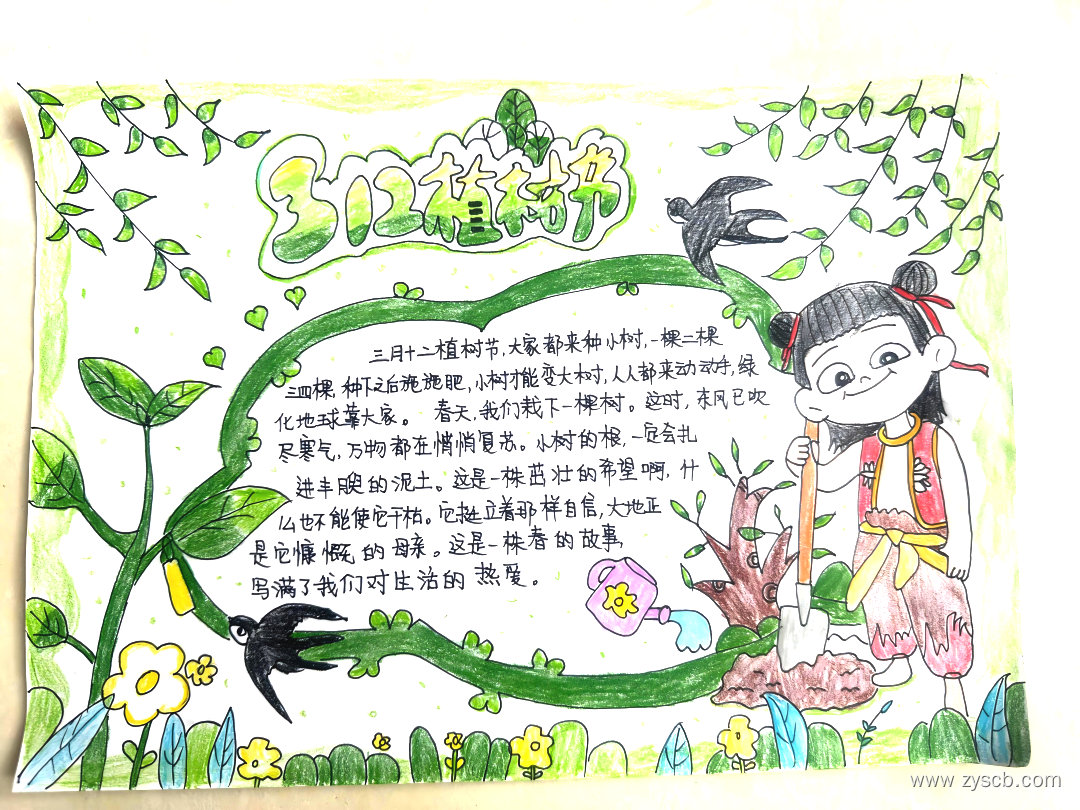 3.12植树节
三月十二植树节,大家都来种小树,一棵二棵
三四棵,种下之后施施肥,小树才能变大树,人人都来动动手,绿
化地球靠大家。 春天,我们栽下一棵树。这时,东风已吹
尽寒气,万物都在悄悄复苏。小树的根,一定会扎
进丰腴的泥土。这是一株茁壮的希望啊,什
么也不能使它干枯。它挺立着那样自信,大地正
是它慷慨的母亲。这是一株春的故事,
写满了我们对生活的热爱。
www.zyscb.com